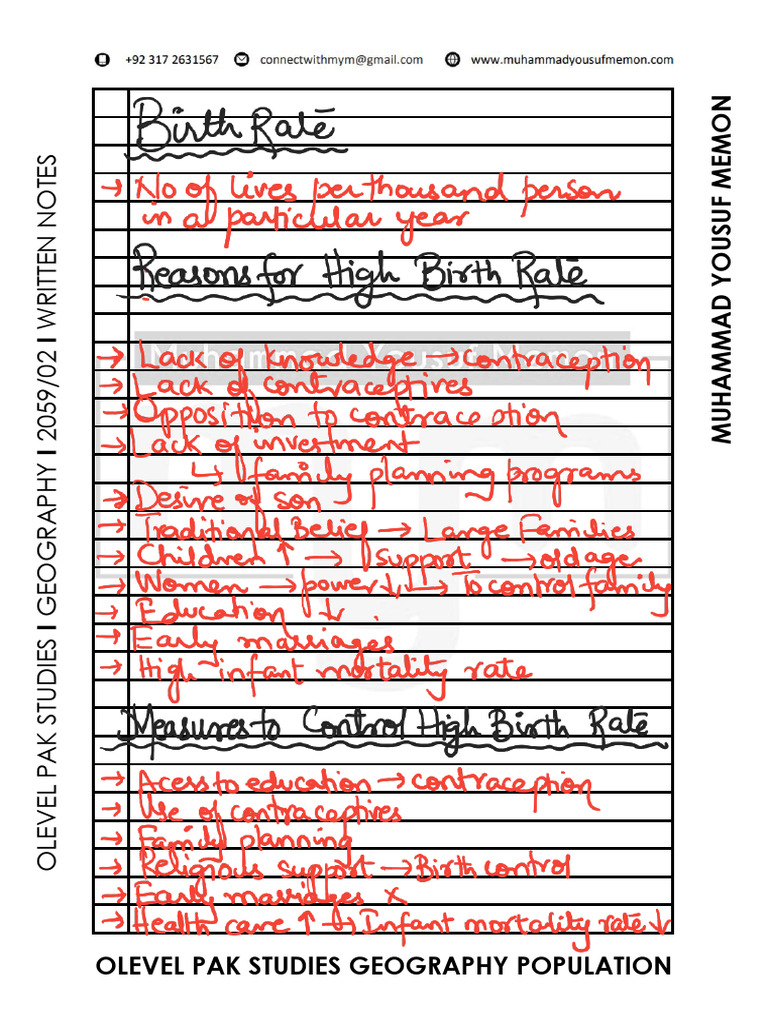 +92 317 2631567 connectwithmym@gmail.com www.muhammadyousufmemon.com
Birth Rate
→ No of lives per thousand person
in a particular year
Reasons for High Birth Rate
Muhammad Yousuf Memon
→ Lack of knowledge → contraception
→ Lack of contraceptives
→ Opposition to contraception
→ Lack of investment
↳ family planning programs
→ Desire of son
→ Traditional Belief → Large Families
→ Children ↑ → support → old age
→ Women → power ↓ ↳ To control family
→ Education ↓
→ Early marriages
→ High infant mortality rate
Measures to Control High Birth Rate
→ Acess to education → contraception
→ Use of contraceptives
→ Family planning
→ Religious support → Birth control
→ Early marridges ×
→ Health care ↑ ↳ Infant mortality rate ↓
OLEVEL PAK STUDIES GEOGRAPHY POPULATION
OLEVEL PAK STUDIES I GEOGRAPHY I 2059/02 I WRITTEN NOTES
MUHAMMAD YOUSUF MEMON